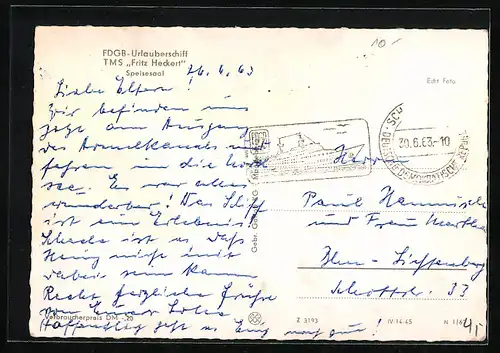 FDGB-Urlauberschiff
TMS „Fritz Heckert"
Speisesaal
26. 6. 63
10,-
Echt Foto
Liebe Eltern!
Wir befinden uns
jetzt am Ausgang
des Armelkanals und
fahren in die Nord-
see. Es war alles
wunderbar! Das Schiff
ist ein Erlebnis.
Schade ist es, daß
Heinz nicht mit
dabei sein kann
Recht herzliche Grüße
von Eurer
Hoffentlich geht es Euch noch gut!
FDGB
DEUTSCHE DEMOKRATISCHE REPUBLIK
30.6.63-10
Herrn
Paul
und Frau Martha
Bln.-Lichtenberg
33
Gebr. Garloff KG
Verbraucherpreis DM -,20
Z 3193
IV-14-45